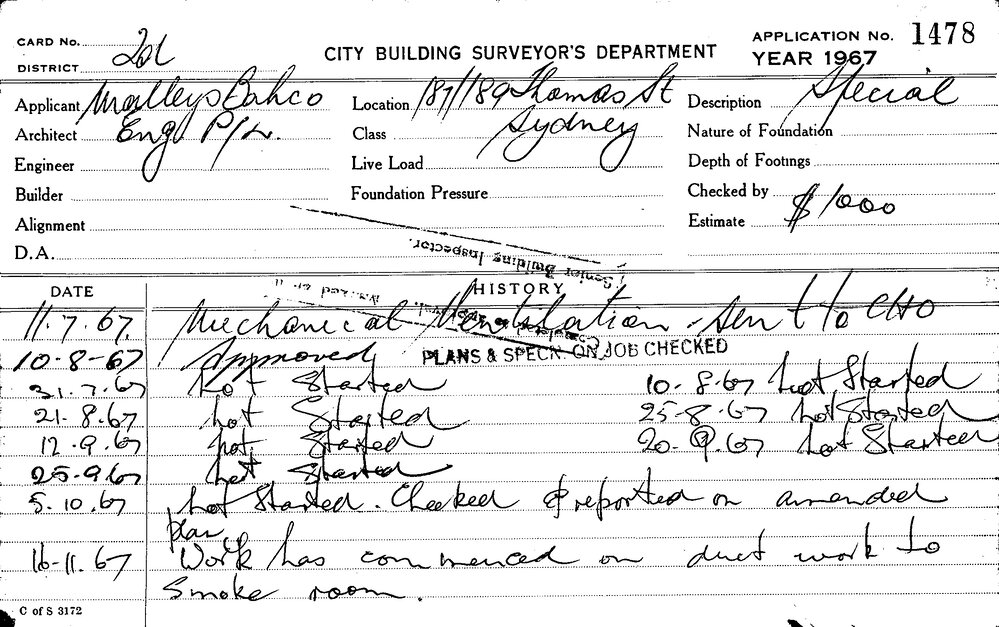 CARD No.
DISTRICT 2nd
CITY BUILDING SURVEYOR'S DEPARTMENT
APPLICATION No. 1478
YEAR 1967
Applicant Malleys Bahco
Location 187/189 Thomas St
Description Special
Architect Eng. P/L.
Class Sydney
Nature of Foundation
Engineer
Live Load
Depth of Footings
Builder
Foundation Pressure
Checked by
Alignment
Estimate $1000
D.A.
Senior Building Inspector.
DATE
HISTORY
11.7.67 Mechanical Ventilation - Sent to CHO
10-8-67 Approved
PLANS & SPECN ON JOB CHECKED
31.7.67 not Started 10-8.67 not Started
21.8.67 not Started 25-8.67 not Started
12.9.67 not Started 20.9.67 not Started
25.9.67 not Started
5.10.67 not Started. Checked & reported on amended
plan
16-11.67 Work has commenced on duct work to
Smoke room.
C of S 3172